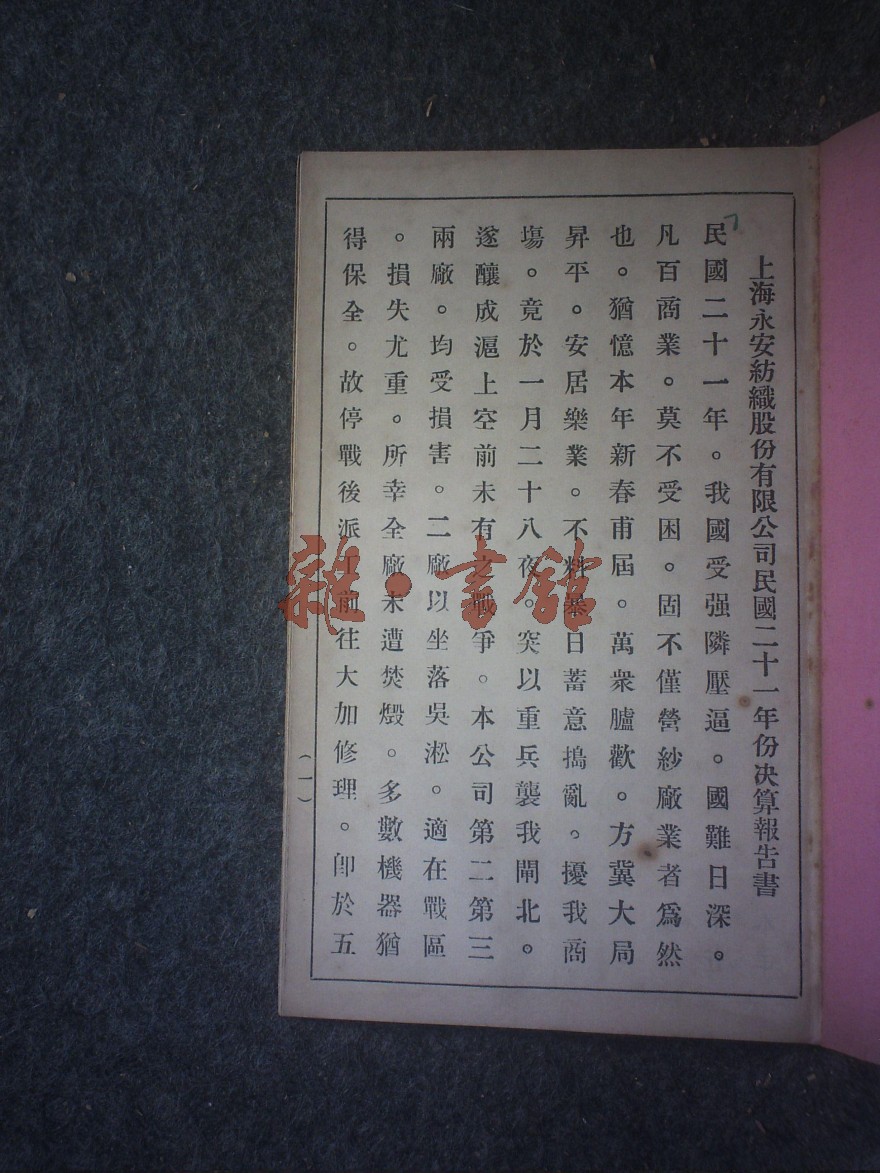 上海永安紡織股份有限公司民國二十一年份決算報告書
民國二十一年。我國受强隣壓逼。國難日深。
凡百商業。莫不受困。固不僅營紗廠業者爲然
也。猶憶本年新春甫屆。萬衆臚歡。方冀大局
昇平。安居樂業。不料暴日蓄意搗亂。擾我商
塲。竟於一月二十八夜。突以重兵襲我閘北。
遂釀成滬上空前未有之戰爭。本公司第二第三
兩廠。均受損害。二廠以坐落吳淞。適在戰區
。損失尤重。所幸全廠未遭焚燬。多數機器猶
得保全。故停戰後派工前往大加修理。卽於五
(一)
雜·書館